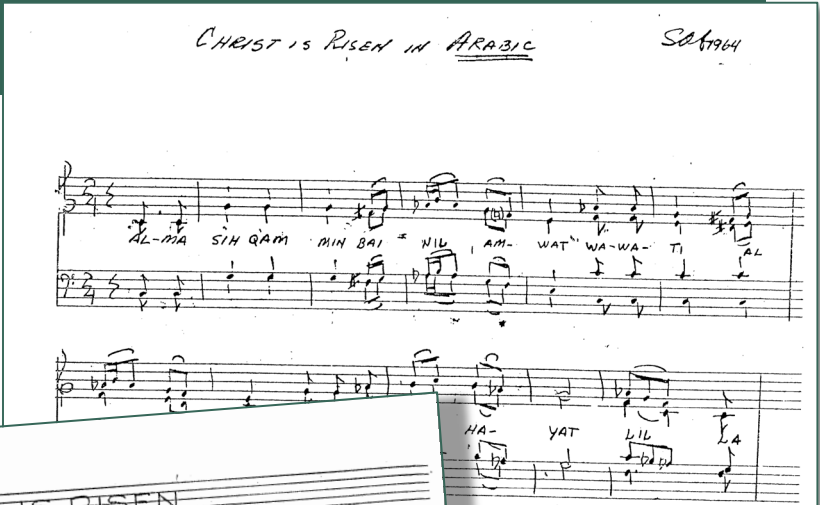 CHRIST IS RISEN IN ARABIC
1964
AL-MA SIH QAM MIN BAI = NIL AM- WAT WA-WA- TI AL
HA- YAT LIL LA
RISEN